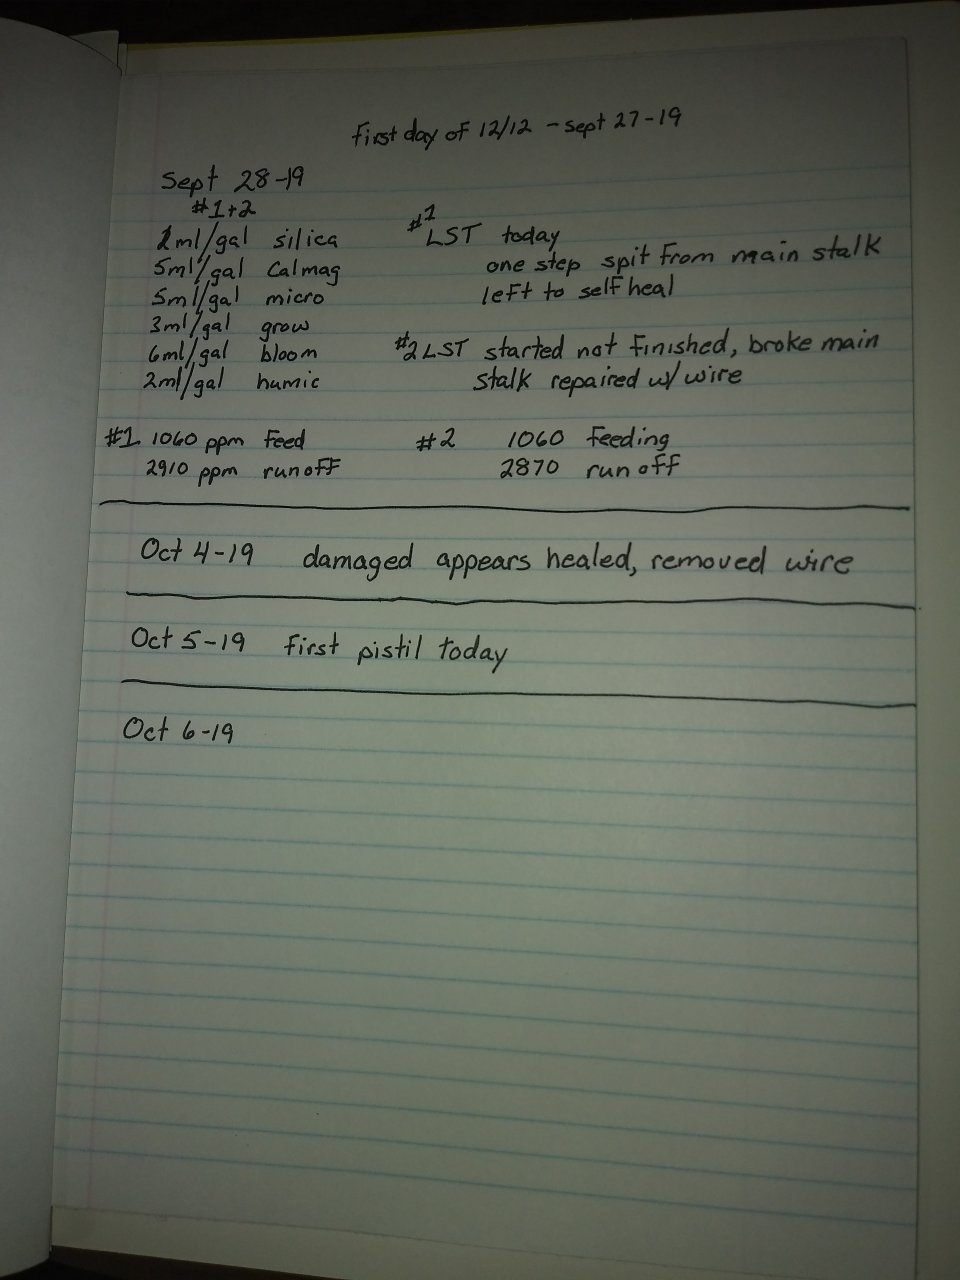 first day of 12/12 - sept 27-19
Sept 28-19
#1+2
2ml/gal silica
5ml/gal Calmag
5ml/gal micro
3ml/gal grow
6ml/gal bloom
2ml/gal humic
#1
LST today
one step spit from main stalk
left to self heal
#2 LST started not finished, broke main
stalk repaired w/ wire
#1 1060 ppm feed
2910 ppm runoff
#2 1060 feeding
2870 run off
Oct 4-19 damaged appears healed, removed wire
Oct 5-19 first pistil today
Oct 6-19